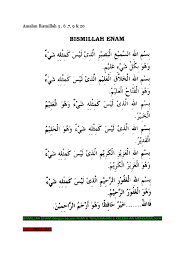 Amalan Bismillah 5 , 6 ,7, 9 & 20
BISMILLAH ENAM
بِسْمِ اللهِ السَّمِيْعِ الْبَصِيْرِ الَّذِيْ لَيْسَ كَمِثْلِهِ شَيْءٌ
وَهُوَ بِكُلِّ شَيْءٍ عَلِيْمٌ.
بِسْمِ اللهِ الْخَلاَّقِ الْعَلِيْمِ الَّذِيْ لَيْسَ كَمِثْلِهِ شَيْءٌ
وَهُوَ الْفَتَّاحُ الْعَلِيْمُ.
بِسْمِ اللهِ الَّذِيْ لَيْسَ كَمِثْلِهِ شَيْءٌ وَهُوَ الْعَلِيْمُ
الْخَبِيْرُ.
بِسْمِ اللهِ الْعَزِيْزِ الْكَرِيْمِ الَّذِيْ لَيْسَ كَمِثْلِهِ شَيْءٌ
وَهُوَ الْعَزِيْزُ الْكَرِيْمُ.
بِسْمِ اللهِ الْغَفُوْرِ الرَّحِيْمِ الَّذِيْ لَيْسَ كَمِثْلِهِ شَيْءٌ
وَهُوَ الْغَفُوْرُ الرَّحِيْمُ.
فَاللهُ......خَيْرٌ حَافِظًا وَهُوَ أَرْحَمُ الرَّاحِمِيْنَ.